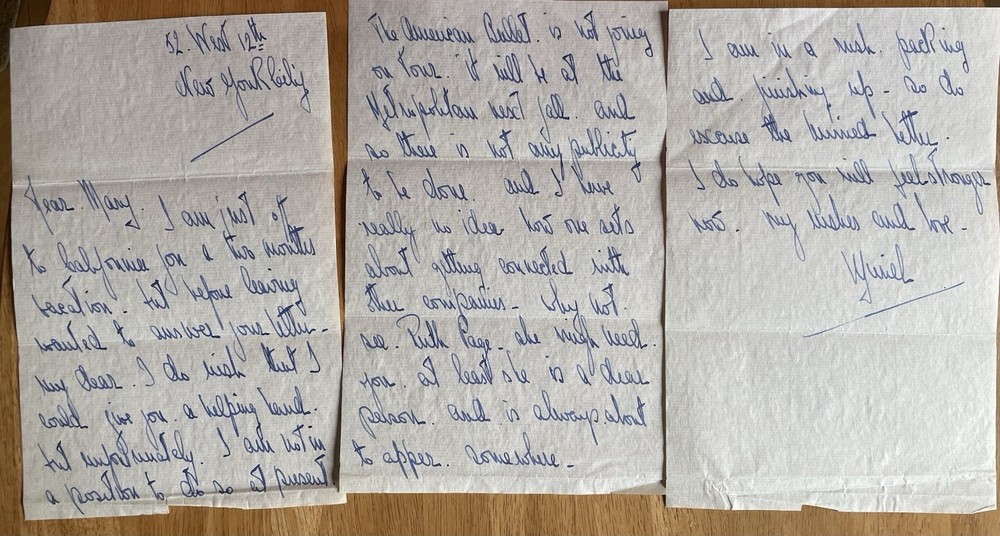 52. West 12th
New York City
Dear. Mary. I am just off
to California for a two months
vacation. but before leaving
wanted to answer your letter -
my dear. I do wish that I
could give you. a helping hand.
but unfortunately. I am not in
a position to do so at present.
The American Ballet. is not going
on tour. it will be at the
Metropolitan next fall. and
so there is not any publicity
to be done. and I have
really no idea how one sets
about getting connected with
other companies - why not.
see. Ruth Page - she might need.
you. at least she is a dear
person. and is always about
to appear. somewhere -
I am in a rush. packing
and. finishing up - so do
excuse the hurried letter.
I do hope you will feel stronger
now. my wishes and love -